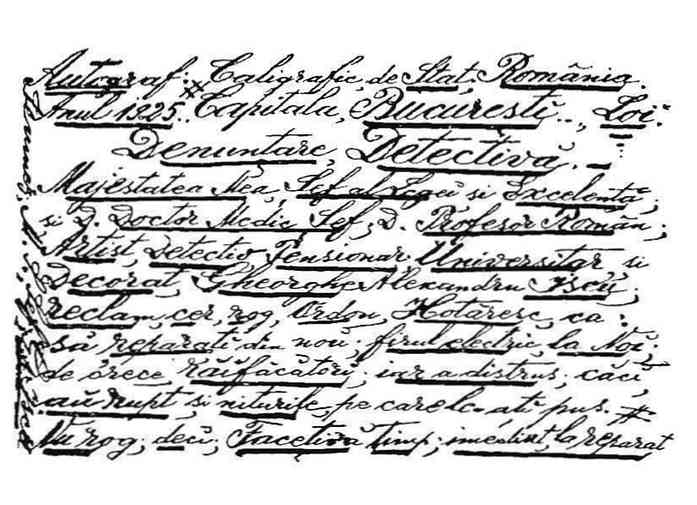 Autograf: Caligrafic, de Stat, România.
Anul 1925. Capitala, Bucuresti.., Loi:
Denuntare, Detectivă. –
Majestatea Mea, Sef al Legei si Excelentă,
si D. Doctor Medic Sef, D. Profesor Român,
Artist, Detectiv Pensionar Universitar si
Decorat, Gheorghe Alexandru
reclam, cer, rog, Ordon, Hotăresc, ca:
să reparati din nou, firul electric, la Noi,
de örece Răifăcători, iar a distrus, căci
au rupt si niturile, pe care le-ati pus. #
Nu rog, deci, Facetivă Timp, imediat, la reparat